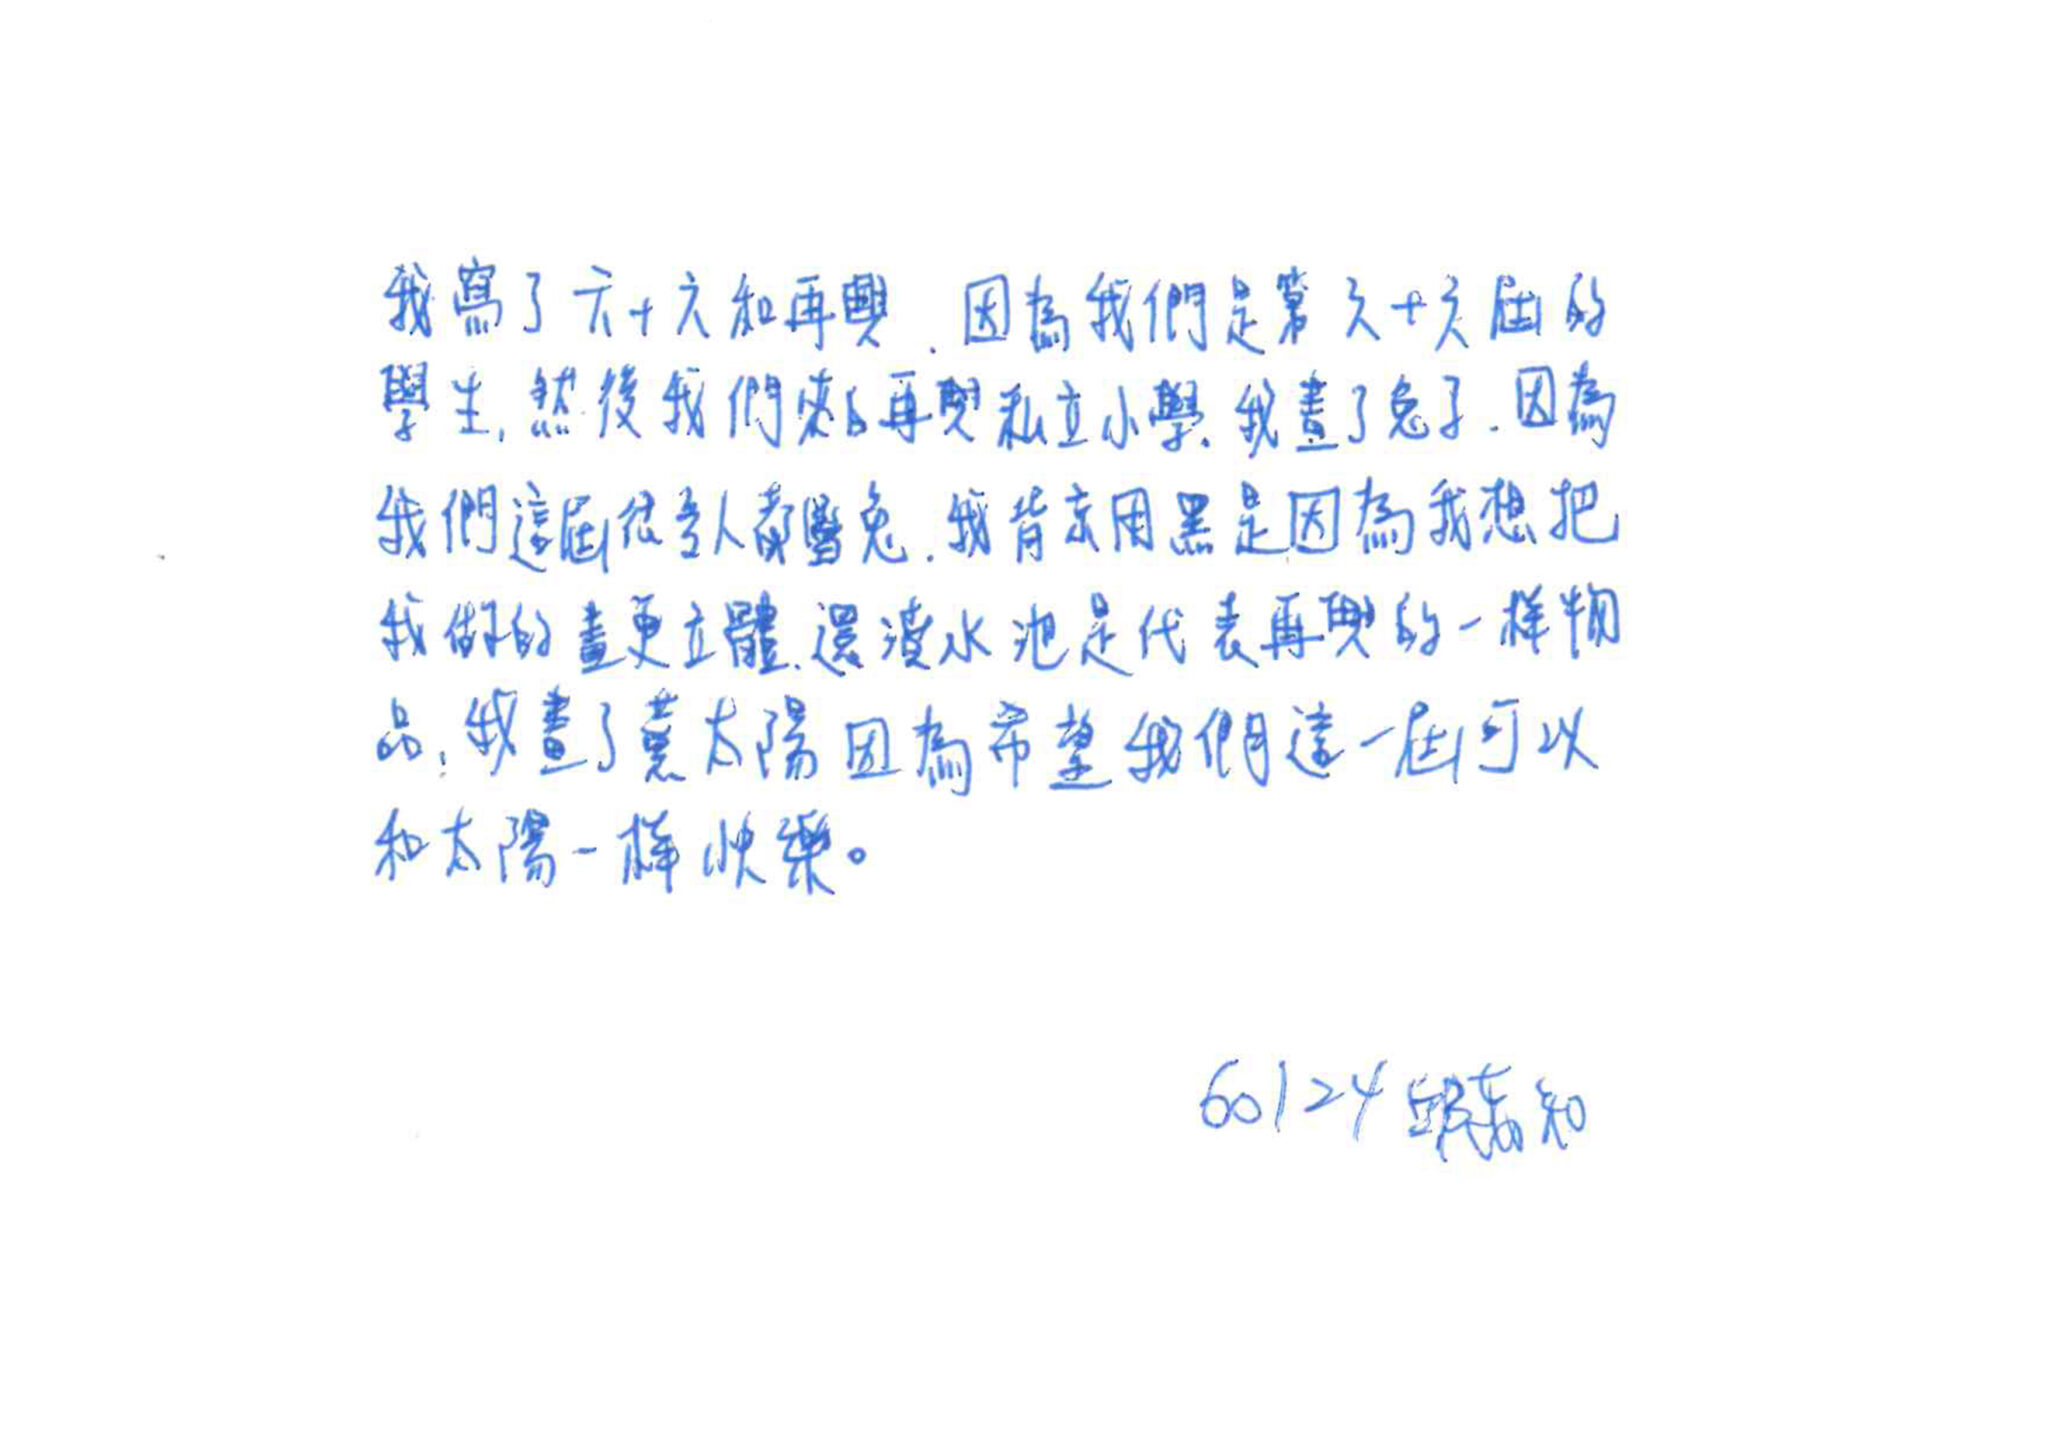 我寫了六十六和再興.因為我們是第六十六屆的
學生,然後我們來自再興私立小學.我畫了兔子.因為
我們這屆很多人都屬兔.我背京用黑是因為我想把
我做的畫更立體.還澆水池是代表再興的一樣物
品,我畫了太陽因為希望我們這一屆可以
和太陽一樣快樂。
60124 邱 知